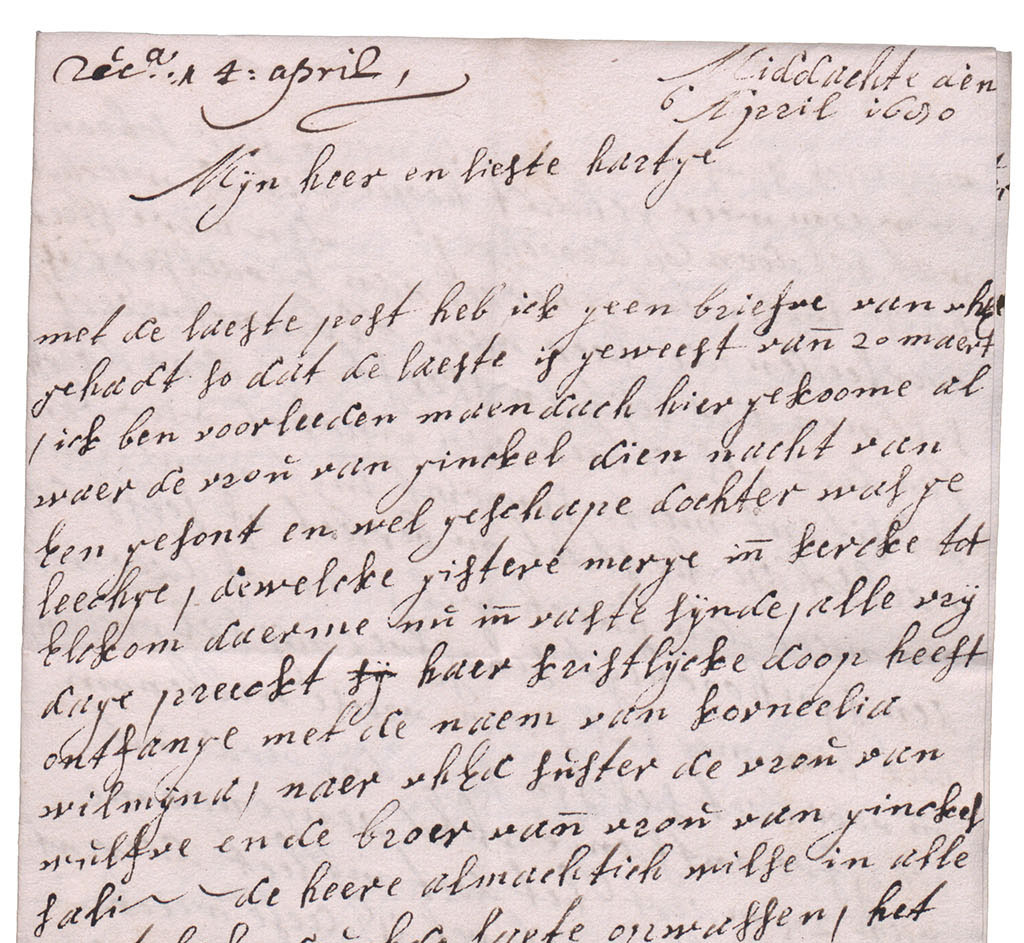 Rec. 14: april,
Middachte den
6 April 1680
Mijn heer en liefste hartge
met de laeste post heb ick geen briefve van uhEd
gehadt so dat de laeste is geweest vann 20 maert
, ick ben voorleeden maendach hier gekoome al
waer de vrou van ginckel dien nacht van
een gesont en wel geschape dochter was ge
leechge, dewelcke gistere merge inn kercke tot
elckom daerme nu inn vaste sijnde, alle vrij
dage preeckt sij haer kristlijcke doop heeft
ontfange met de naem van korneelia
wilmijna, naer uhEd suster de vrou van
wulfve ende broer vann vrou van ginckel
sali de heere almachtich wilse in alle
laete opwassen, het